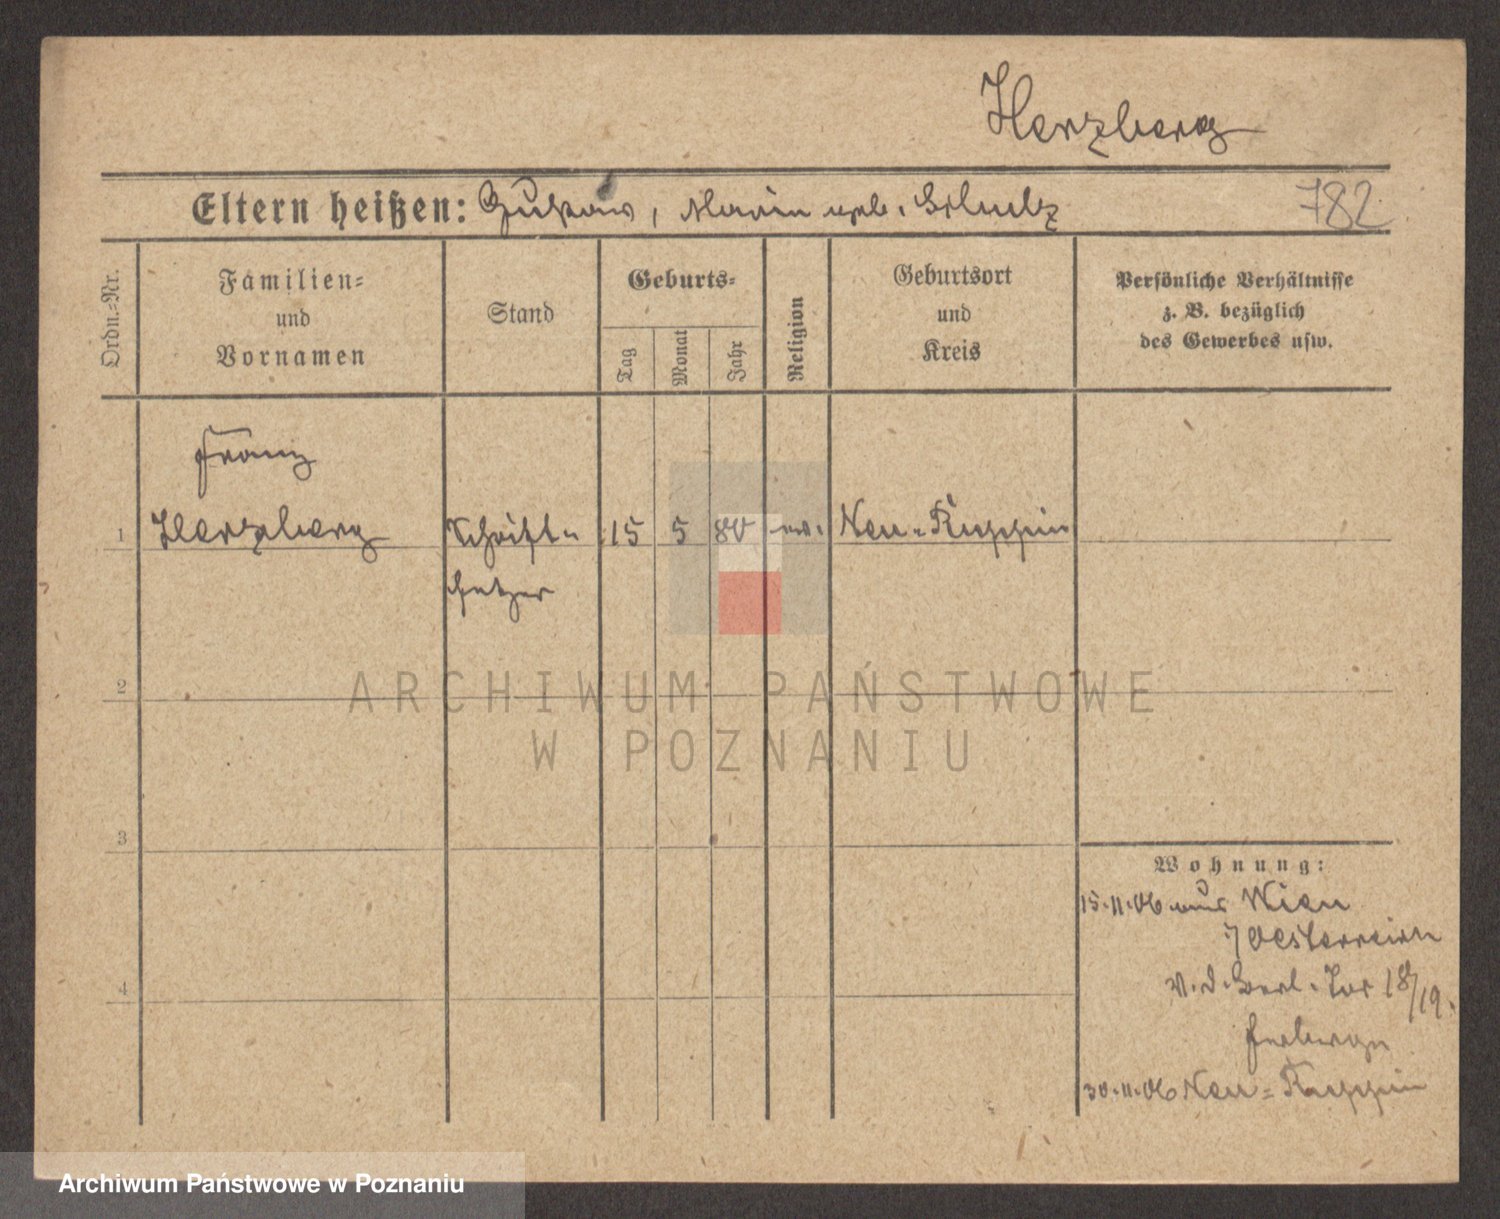 Herzberg
Eltern heißen: Gustav, Marie geb. Schulz
782
Ordn.-Nr.
Familien-
und
Vornamen
Stand
Geburts-
Tag
Monat
Jahr
Religion
Geburtsort
und
Kreis
Persönliche Verhältnisse
z. B. bezüglich
des Gewerbes usw.
Franz
1 Herzberg Schrift- 15 5 80 ev. Neu-Ruppin
setzer
2
ARCHIWUM PAŃSTWOWE
W POZNANIU
3
Wohnung:
15.11.06 aus Wien
Oesterreich
v. d. Berl. Tor 18/19.
Herberge
4
30.11.06 Neu-Ruppin
Archiwum Państwowe w Poznaniu